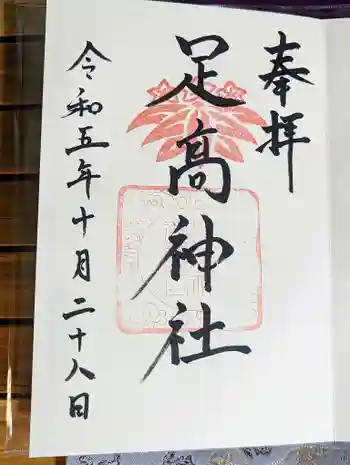 奉拝
足高神社
令和五年十月二十八日